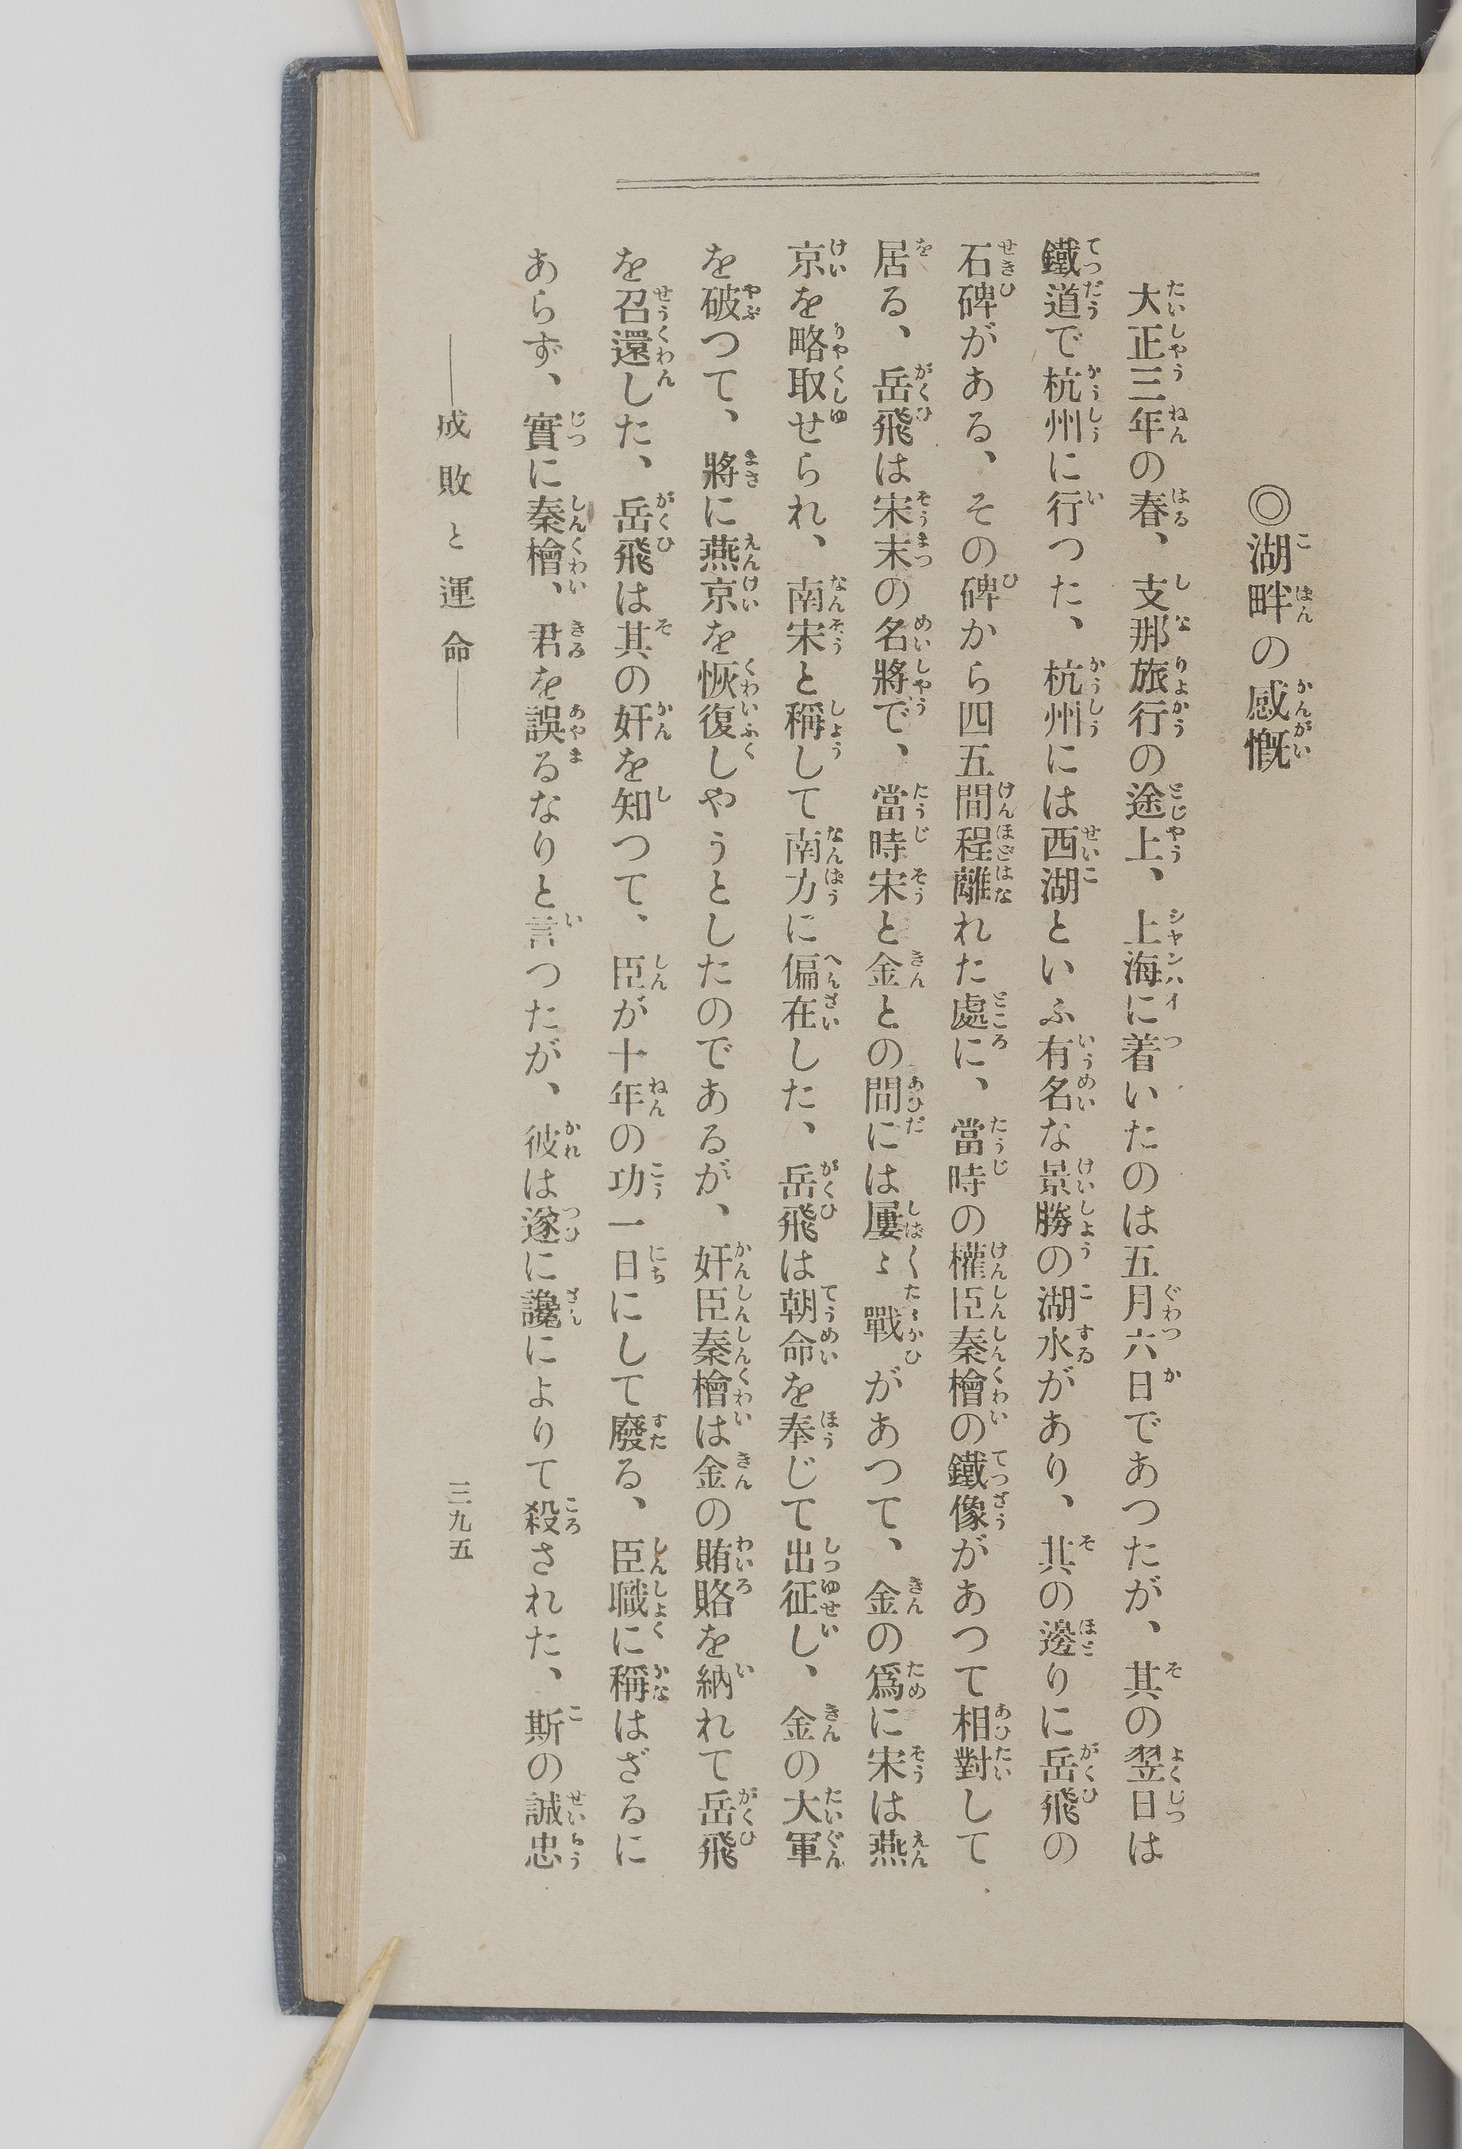 ◎湖畔の感慨
大正三年の春、支那旅行の途上、上海に着いたのは五月六日であつたが、其の翌日は
鐵道で杭州に行つた、杭州には西湖といふ有名な景勝の湖水があり、其の邊りに岳飛の
石碑がある、その碑から四五間程離れた處に、當時の權臣秦檜の鐵像があつて相對して
居る、岳飛は宋末の名將で、當時宋と金との間には屢〻戰があつて、金の爲に宋は燕
京を略取せられ、南宋と稱して南方に偏在した、岳飛は朝命を奉じて出征し、金の大軍
を破つて、將に燕京を恢復しやうとしたのであるが、奸臣秦檜は金の賄賂を納れて岳飛
を召還した、岳飛は其の奸を知つて、臣が十年の功一日にして廢る、臣職に稱はざるに
あらず、實に秦檜、君を誤るなりと言つたが、彼は遂に讒によりて殺された、斯の誠忠
――成敗と運命――
三九五